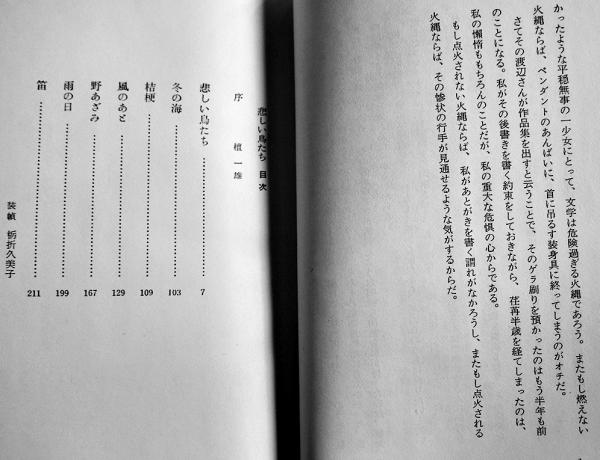 かったような平穏無事の一少女にとって、文学は危険過ぎる火縄であろう。またもし燃えない
火縄ならば、ペンダントのあんばいに、首に吊るす装身具に終ってしまうのがオチだ。
さてその渡辺さんが作品集を出すと云うことで、そのゲラ刷りを預かったのはもう半年も前
のことになる。私がその後書きを書く約束をしておきながら、荏苒半歳を経てしまったのは、
私の懶惰ももちろんのことだが、私の重大な危惧の心からである。
もし点火されない火縄ならば、私があとがきを書く謂れがなかろうし、またもし点火される
火縄ならば、その惨状の行手が見通せるような気がするからだ。
悲しい鳥たち 目次
序 檀一雄
悲しい鳥たち 7
冬の海 103
桔梗 109
風のあと 129
野あざみ 167
雨の日 199
笛 211
装幀 栃折久美子